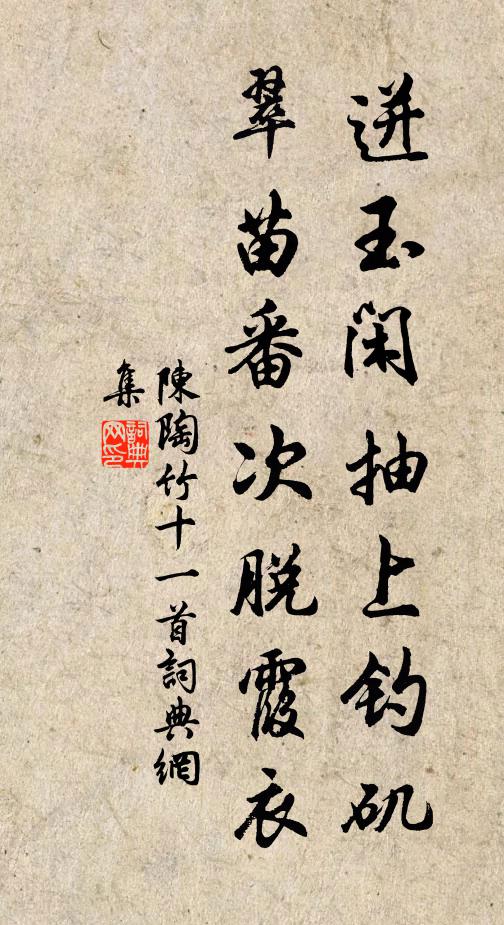 迸玉閑抽上钓矶
翠苗番次脱霞衣
陳陶竹十一首詞典網
集
詞典网印